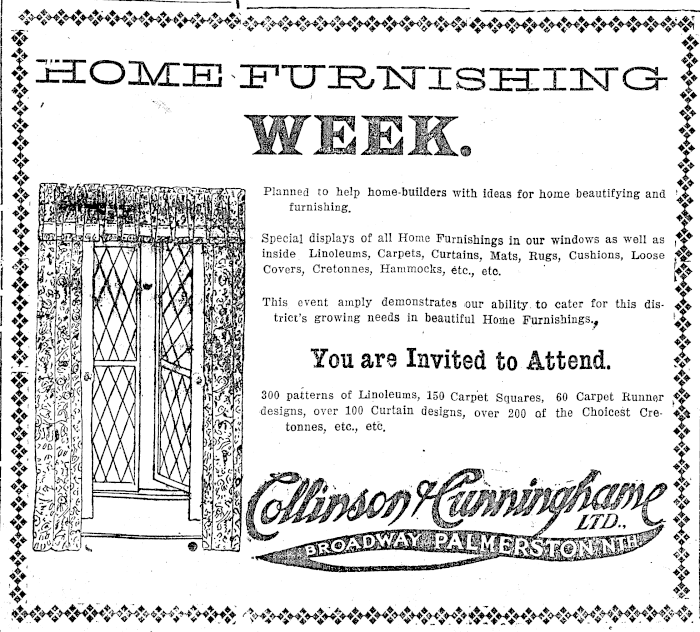 HOME FURNISHING
WEEK.
Planned to help home-builders with ideas for home beautifying and
furnishing.
Special displays of all Home Furnishings in our windows as well as
inside Linoleums, Carpets, Curtains, Mats, Rugs, Cushions, Loose
Covers, Cretonnes, Hammocks, etc., etc.
This event amply demonstrates our ability to cater for this dis-
trict's growing needs in beautiful Home Furnishings.
You are Invited to Attend.
300 patterns of Linoleums, 150 Carpet Squares, 60 Carpet Runner
designs, over 100 Curtain designs, over 200 of the Choicest Cre-
tonnes, etc., etc.
Collinson & Cunninghame
LTD.,
BROADWAY PALMERSTON NTH